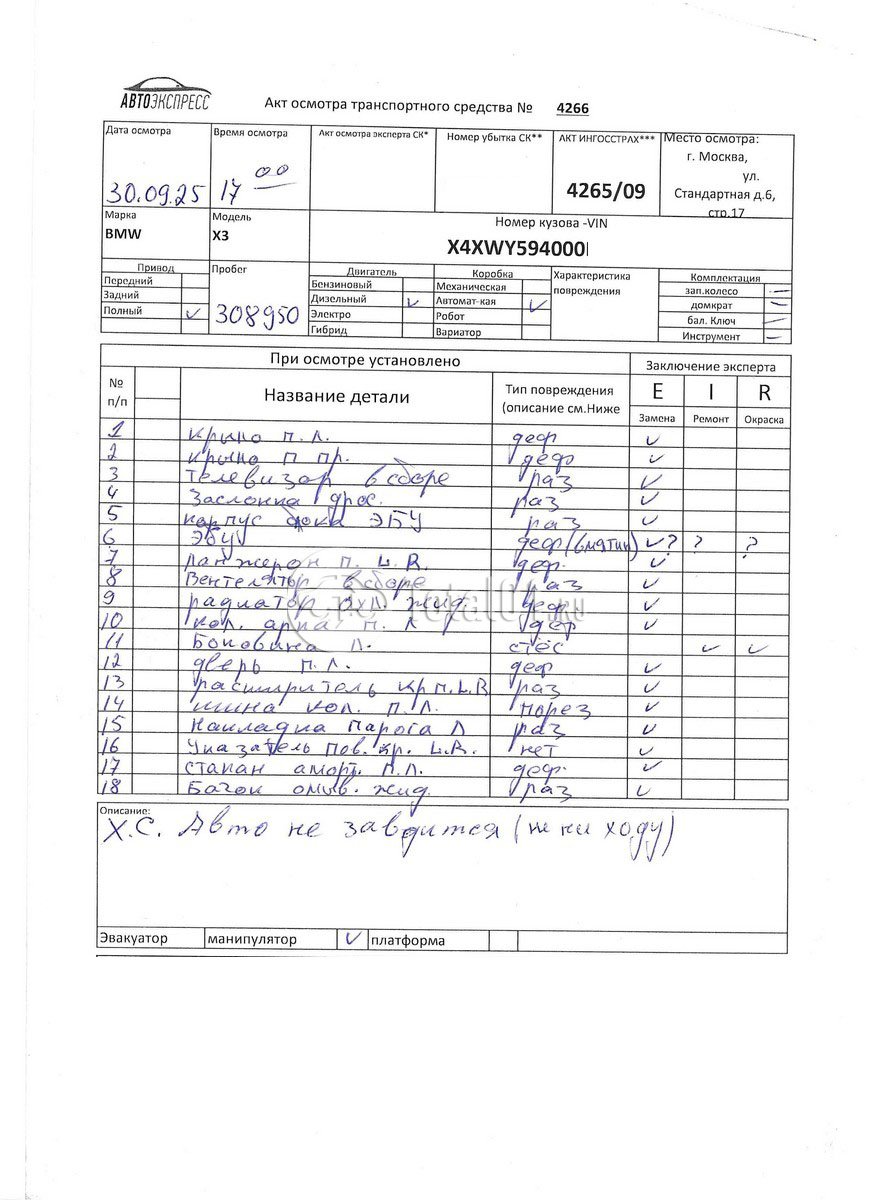 АВТОЭКСПРЕСС
Акт осмотра транспортного средства № 4266
Дата осмотра Время осмотра Акт осмотра эксперта СК* Номер убытка СК** АКТ ИНГОССТРАХ*** Место осмотра:
г. Москва,
ул.
30.09.25 17 00 4265/09 Стандартная д.6,
стр.17
Марка Модель Номер кузова -VIN
BMW X3 X4XWY594000
Привод Пробег Двигатель Коробка Характеристика повреждения Комплектация
Передний Бензиновый Механическая зап.колесо —
Задний Дизельный ✓ Автомат-кая ✓ домкрат —
Полный ✓ 308950 Электро Робот бал. Ключ —
Гибрид Вариатор Инструмент —
При осмотре установлено Заключение эксперта
№ п/п Название детали Тип повреждения (описание см.Ниже E I R
Замена Ремонт Окраска
1 крыло п.л. деф ✓
2 крыло п пр. деф ✓
3 телевизор в сборе раз ✓
4 Заслонка дрос. раз ✓
5 корпус блока ЭБУ раз ✓
6 ЭБУ деф(вмятин) ✓? ? ?
7 Ланжерон п. L.R. деф. ✓
8 Вентелятор в сборе раз ✓
9 радиатор охл. жид. деф ✓
10 кол. арка п. л деф ✓
11 Боковина л. стёс ✓ ✓
12 дверь п.л. деф ✓
13 расширитель кр п.L.R раз ✓
14 шина кол. п.л. порез ✓
15 Накладка парога л раз ✓
16 Указатель пов. кр. L.R. нет ✓
17 стакан аморт. п.л. деф. ✓
18 Бачок омыв. жид. раз ✓
Описание:
Х.С. Авто не заводится (не на ходу)
Эвакуатор манипулятор ✓ платформа
Total01.ru